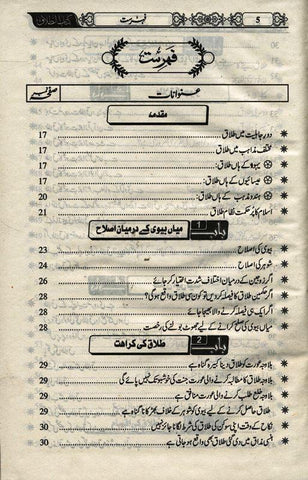 کتاب الطلاق فہرست 5
فہرست
عنوانات صفحہ نمبر
مقدمہ
دور جاہلیت میں طلاق 17
مختلف مذاہب میں طلاق 17
یہود کے ہاں طلاق: 17
عیسائیوں کے ہاں طلاق: 17
ہندو مذہب کے ہاں طلاق: 20
اسلام کا پُر حکمت نظام طلاق 21
باب 1 میاں بیوی کے درمیان اصلاح
بیوی کی اصلاح 23
شوہر کی اصلاح 24
اگر زوجین کے درمیان اختلاف شدت اختیار کر جائے 26
اگر حکمین طلاق کا فیصلہ کر دیں تو کون سی طلاق واقع ہو گی؟ 28
اگر طلاق کا فیصلہ کرنے والا بھیجا جائے 28
میاں بیوی کی صلح کرانے کے لیے جھوٹ بولنے کی رخصت 28
باب 2 طلاق کی کراہت
بلاوجہ عورت کو طلاق دینا کبیرہ گناہ ہے 29
بلاوجہ طلاق کا مطالبہ کرنے والی عورت جنت کی خوشبو تک نہیں پائے گی 29
بلاوجہ خلع طلب کرنے والی عورت منافق ہے 29
طلاق حاصل کرنے کے لیے بیوی کو شوہر کے خلاف بھڑکانا گناہ ہے 29
نکاح کے وقت اپنی سوکن کی طلاق کی شرط لگانا جائز نہیں 30
ہنسی مذاق میں دی گئی طلاق بھی واقع ہو جاتی ہے 30